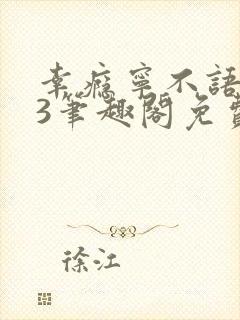 幸瘾宁不語
3笔趣閣免費
徐江